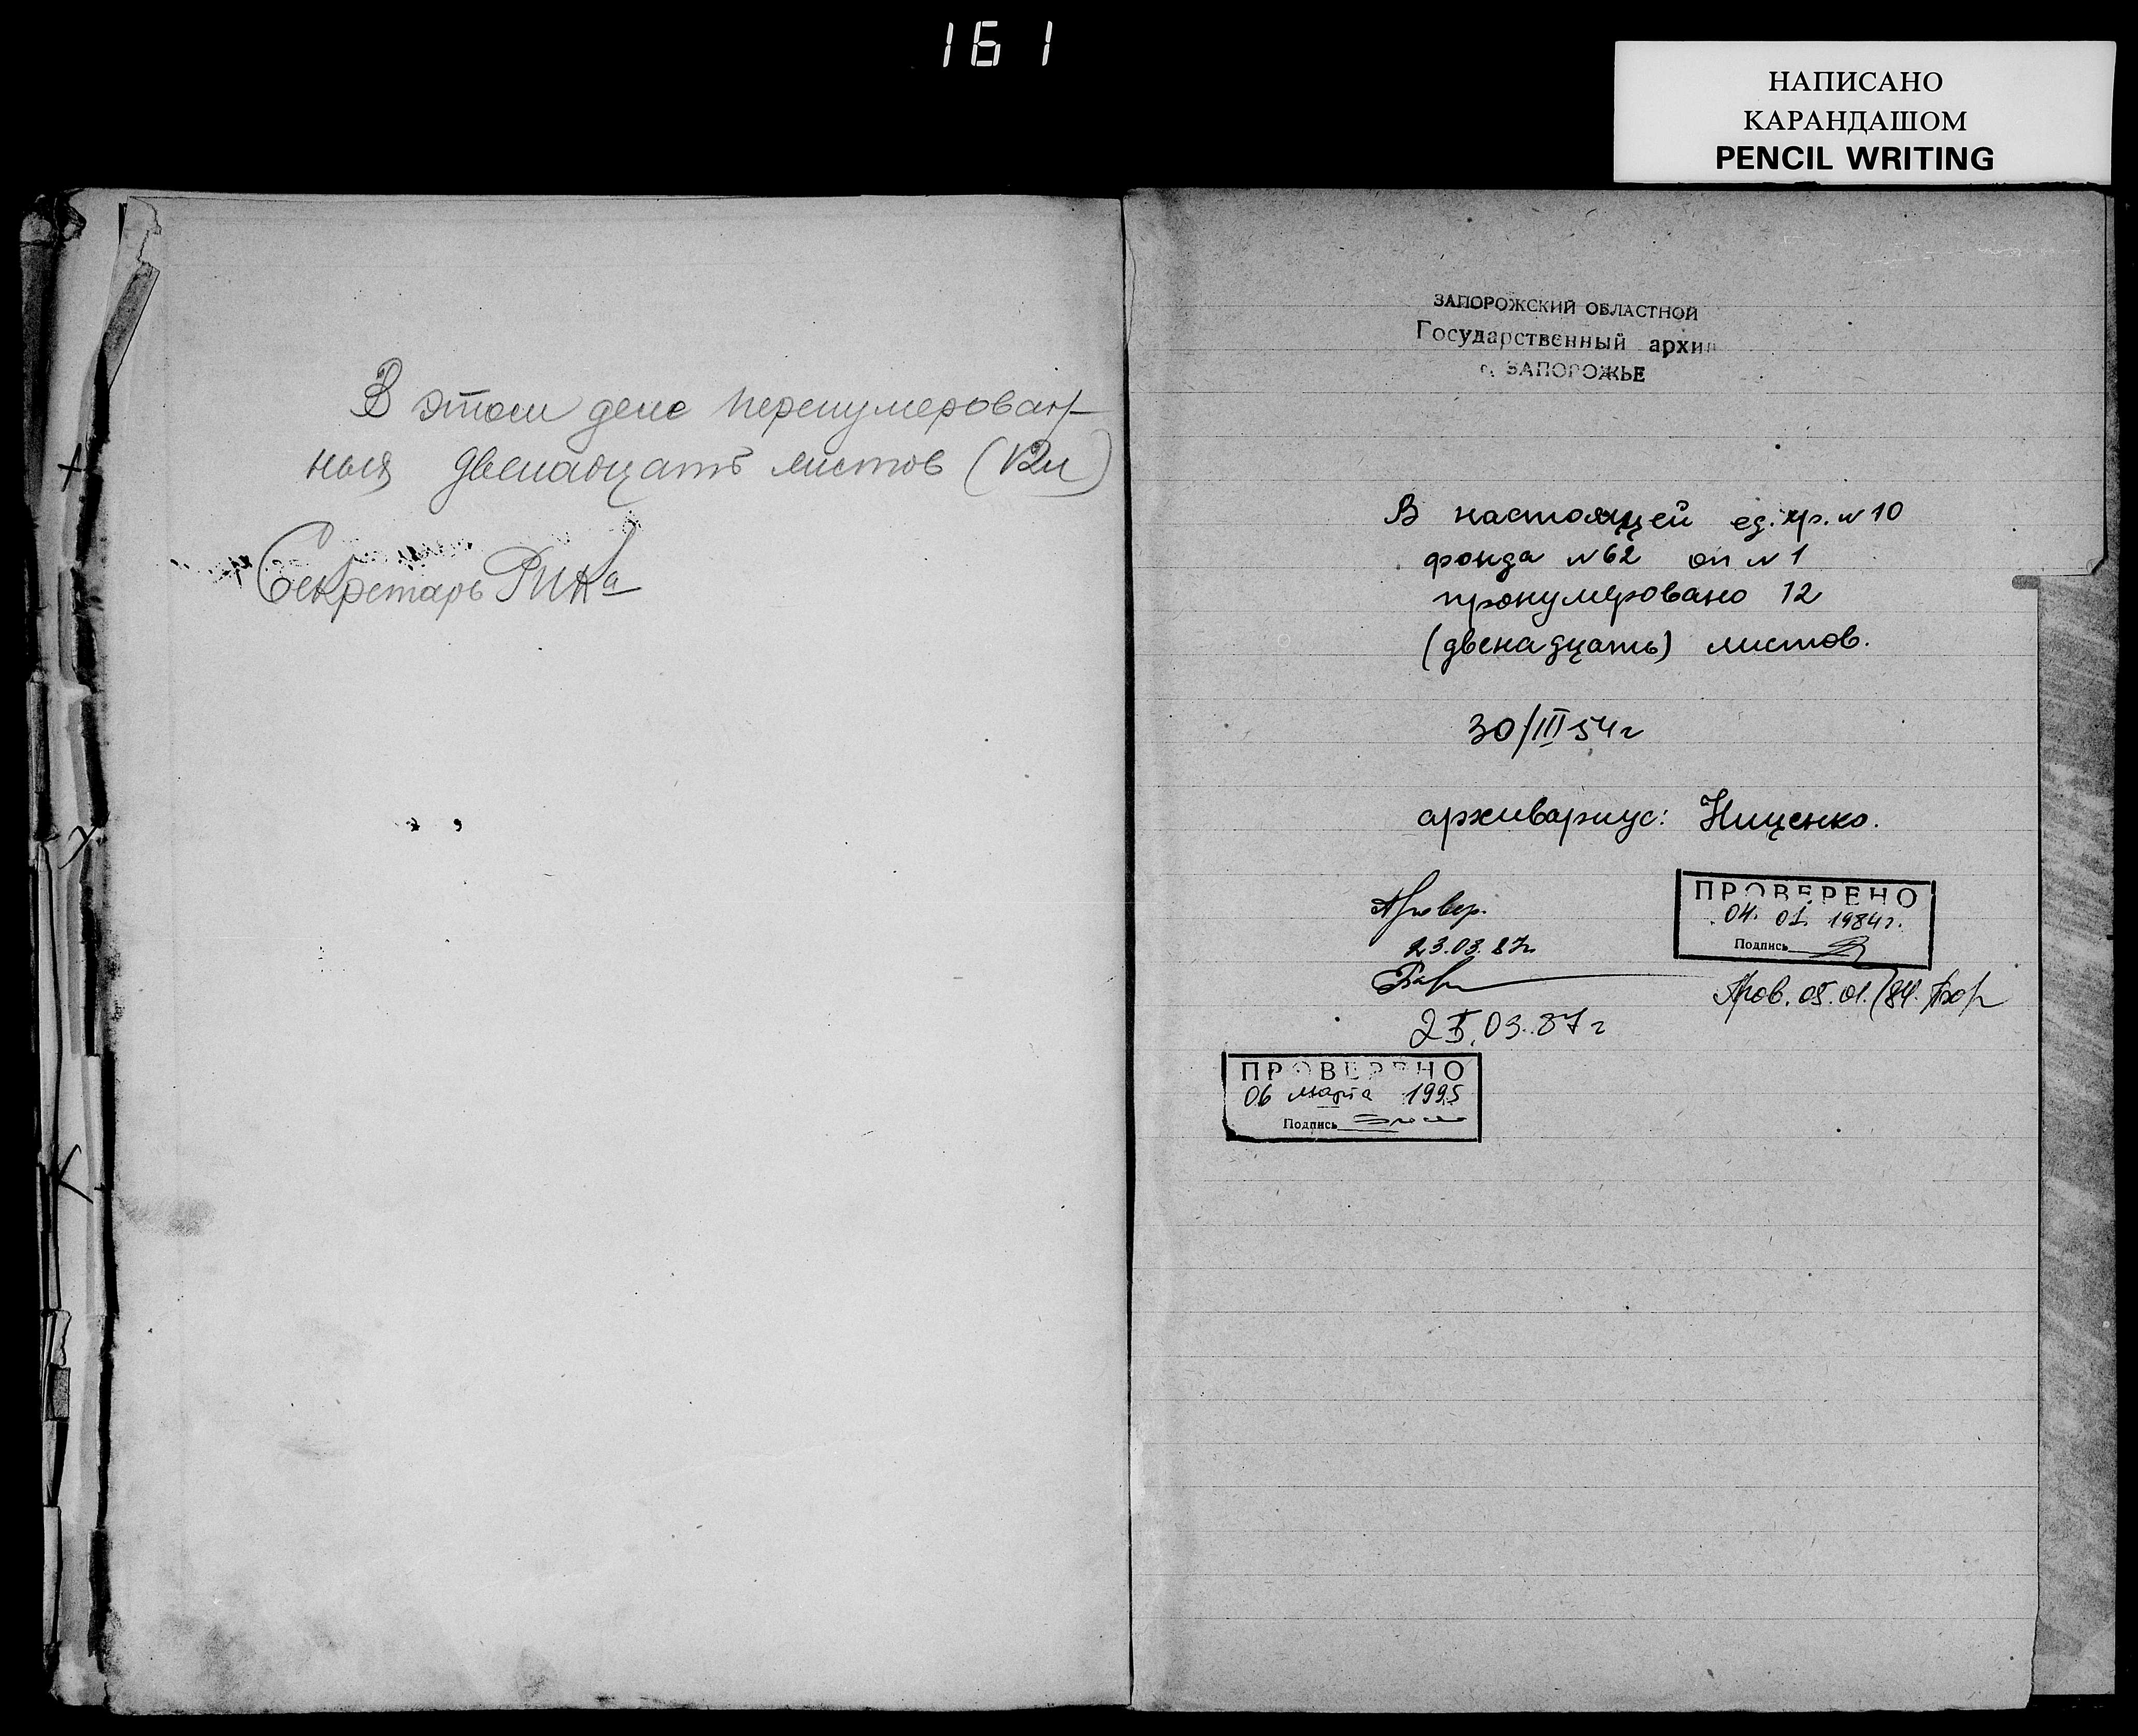 161
НАПИСАНО
КАРАНДАШОМ
PENCIL WRITING
В этом деле перенумерован-
ных двенадцать листов (12л)
Секретарь РИКа
ЗАПОРОЖСКИЙ ОБЛАСТНОЙ
Государственный архив
г. ЗАПОРОЖЬЕ
В настоящей ед. хр. № 10
фонда № 62 оп № 1
пронумеровано 12
(двенадцать) листов.
30/III 54 г
архивариус: Нищенко.
Провер.
23.03.87г.
25.03.87 г
ПРОВЕРЕНО
04. 01. 1984 г.
Подпись
Пров. 05.01.84.
ПРОВЕРЕНО
06 марта 1995
Подпись